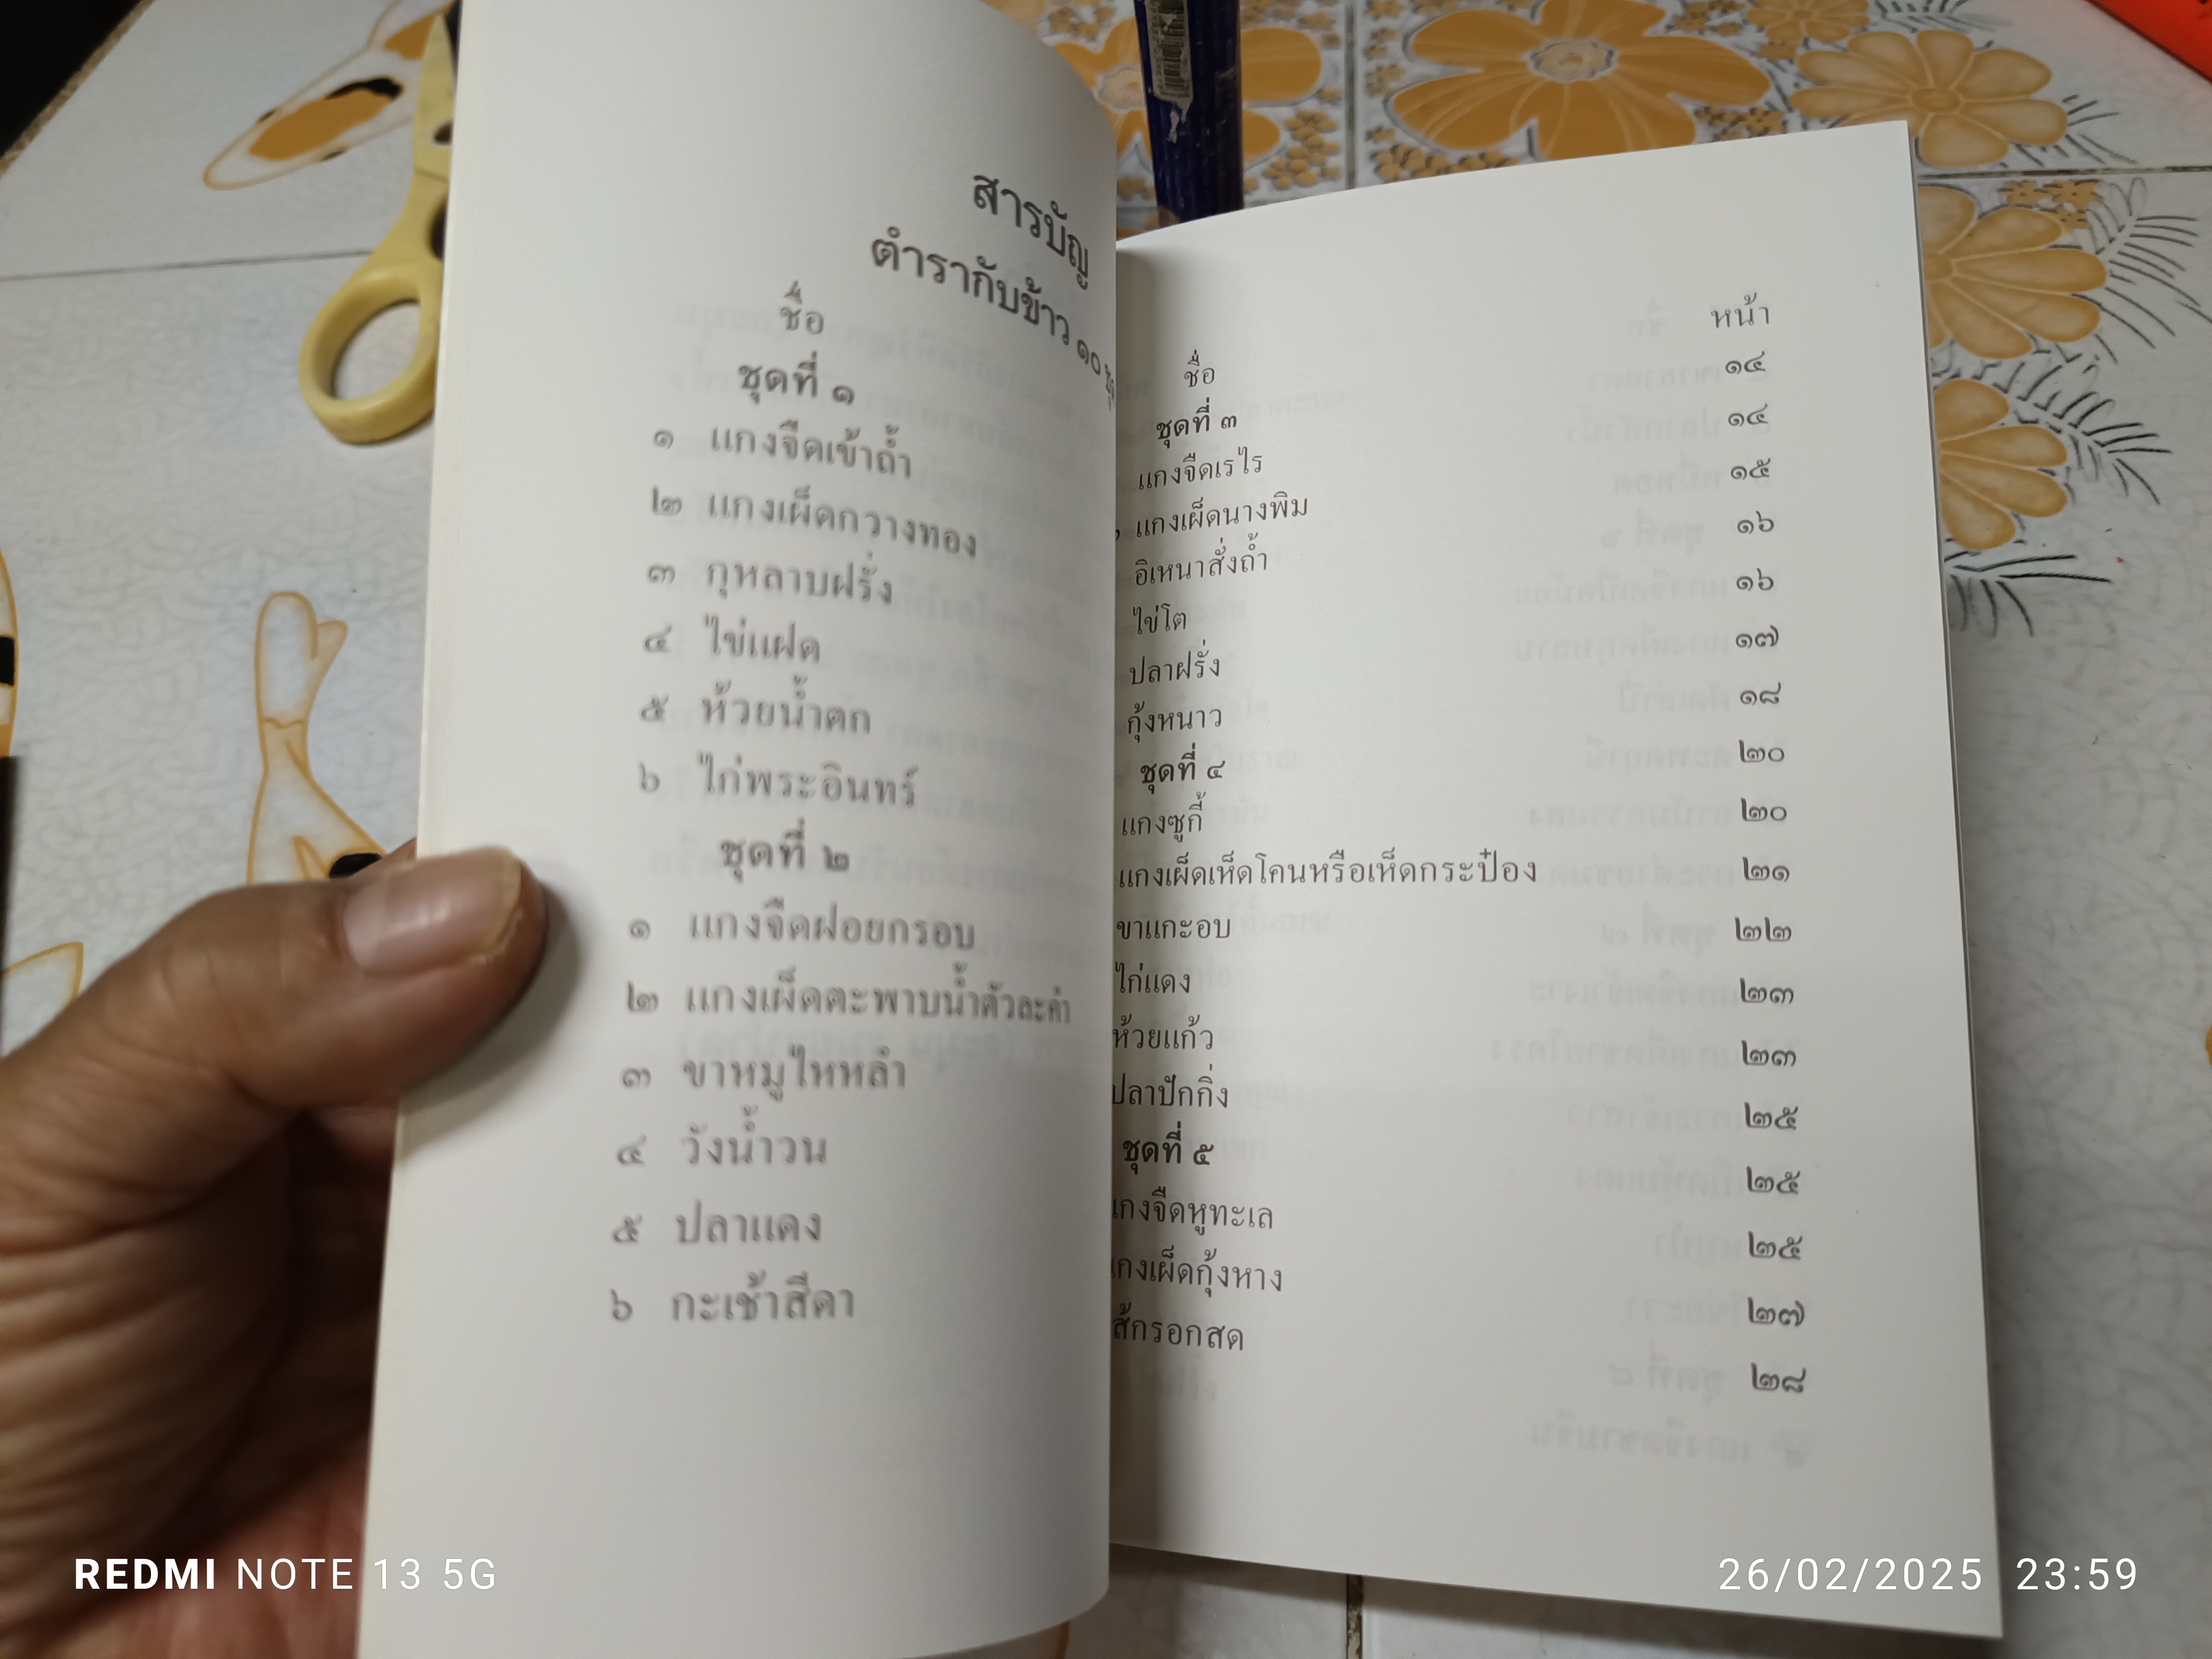 สารบัญ
ตำรากับข้าว ๑๐
ชื่อ
ชุดที่ ๑
๑ แกงจืดเข้าถ้ำ
๒ แกงเผ็ดกวางทอง
๓ กุหลาบฝรั่ง
๔ ไข่แฝด
๕ ห้วยน้ำตก
๖ ไก่พระอินทร์
ชุดที่ ๒
๑ แกงจืดฝอยกรอบ
๒ แกงเผ็ดตะพาบน้ำตัวละคำ
๓ ขาหมูไหหลำ
๔ วังน้ำวน
๕ ปลาแดง
๖ กะเช้าสีดา
ชื่อ หน้า
ชุดที่ ๓ ๑๔
แกงจืดเรไร ๑๔
แกงเผ็ดนางพิม ๑๕
อิเหนาสั่งถ้ำ ๑๖
ไข่โต ๑๖
ปลาฝรั่ง ๑๗
กุ้งหนาว ๑๘
ชุดที่ ๔ ๒๐
แกงซูกี้ ๒๐
แกงเผ็ดเห็ดโคนหรือเห็ดกระป๋อง ๒๑
ขาแกะอบ ๒๒
ไก่แดง ๒๓
ห้วยแก้ว ๒๓
ปลาปักกิ่ง ๒๕
ชุดที่ ๕ ๒๕
กงจืดหูทะเล ๒๕
กงเผ็ดกุ้งหาง ๒๗
ส้กรอกสด ๒๘
REDMI NOTE 13 5G
26/02/2025 23:59